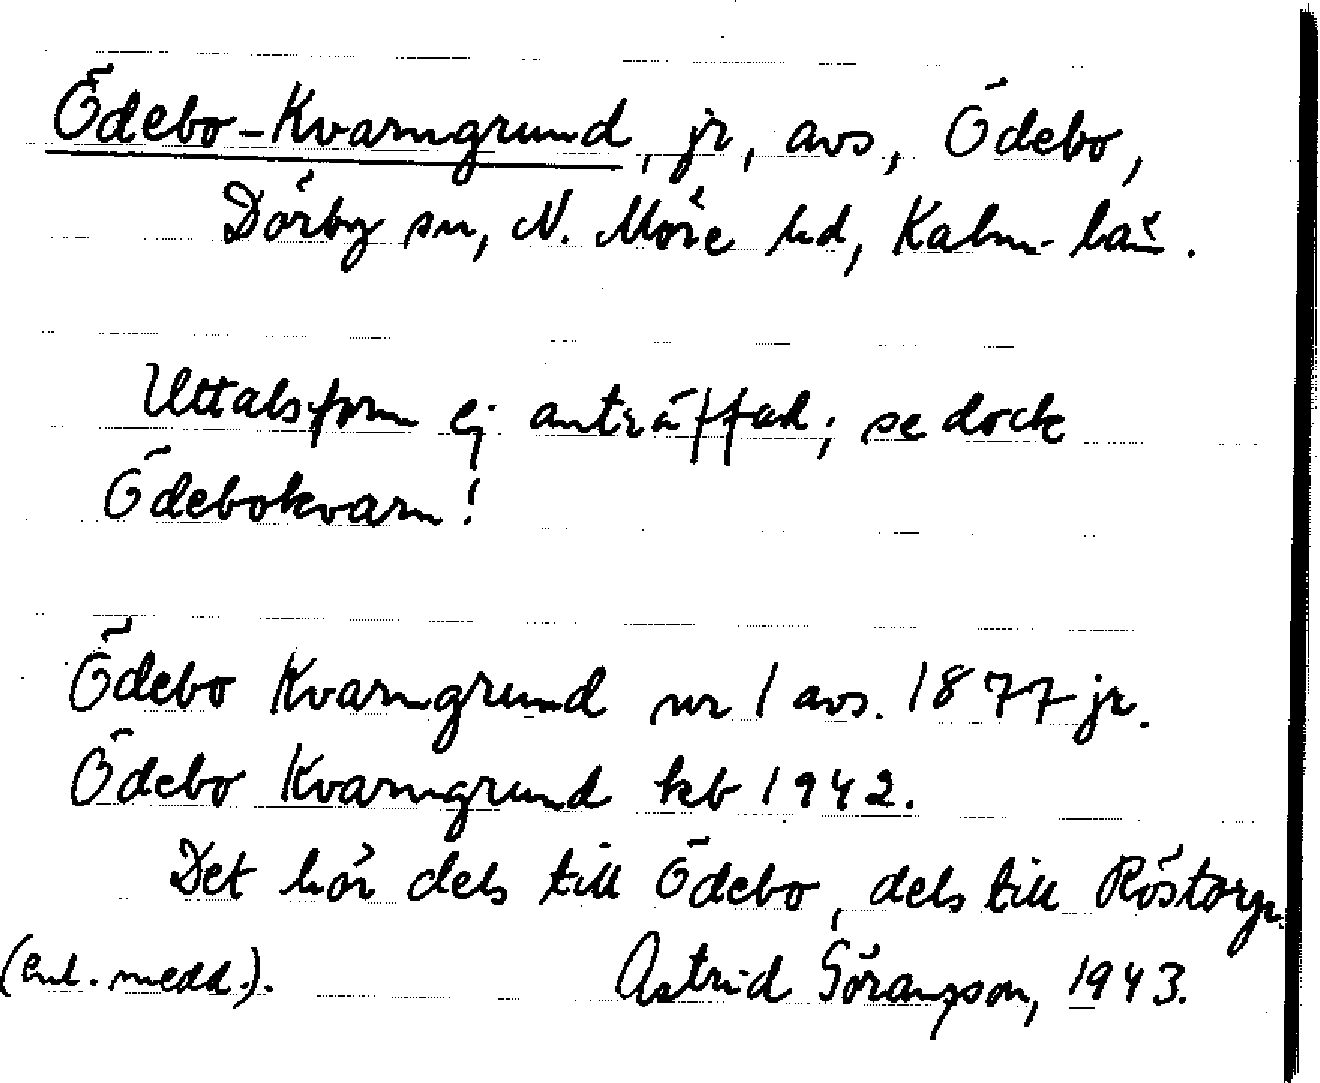 Ödebo-Kvarngrund, jr, avs, Ödebo,
Dörby sn, N. Möre hd, Kalm. län.
Uttalsform ej anträffad; se dock
Ödebokvarn!
Ödebo Kvarngrund nr 1 avs. 1877 jr.
Ödebo Kvarngrund kb 1942.
Det hör dels till Ödebo, dels till Röstorp
(enl. medd.). Astrid Göransson, 1943.